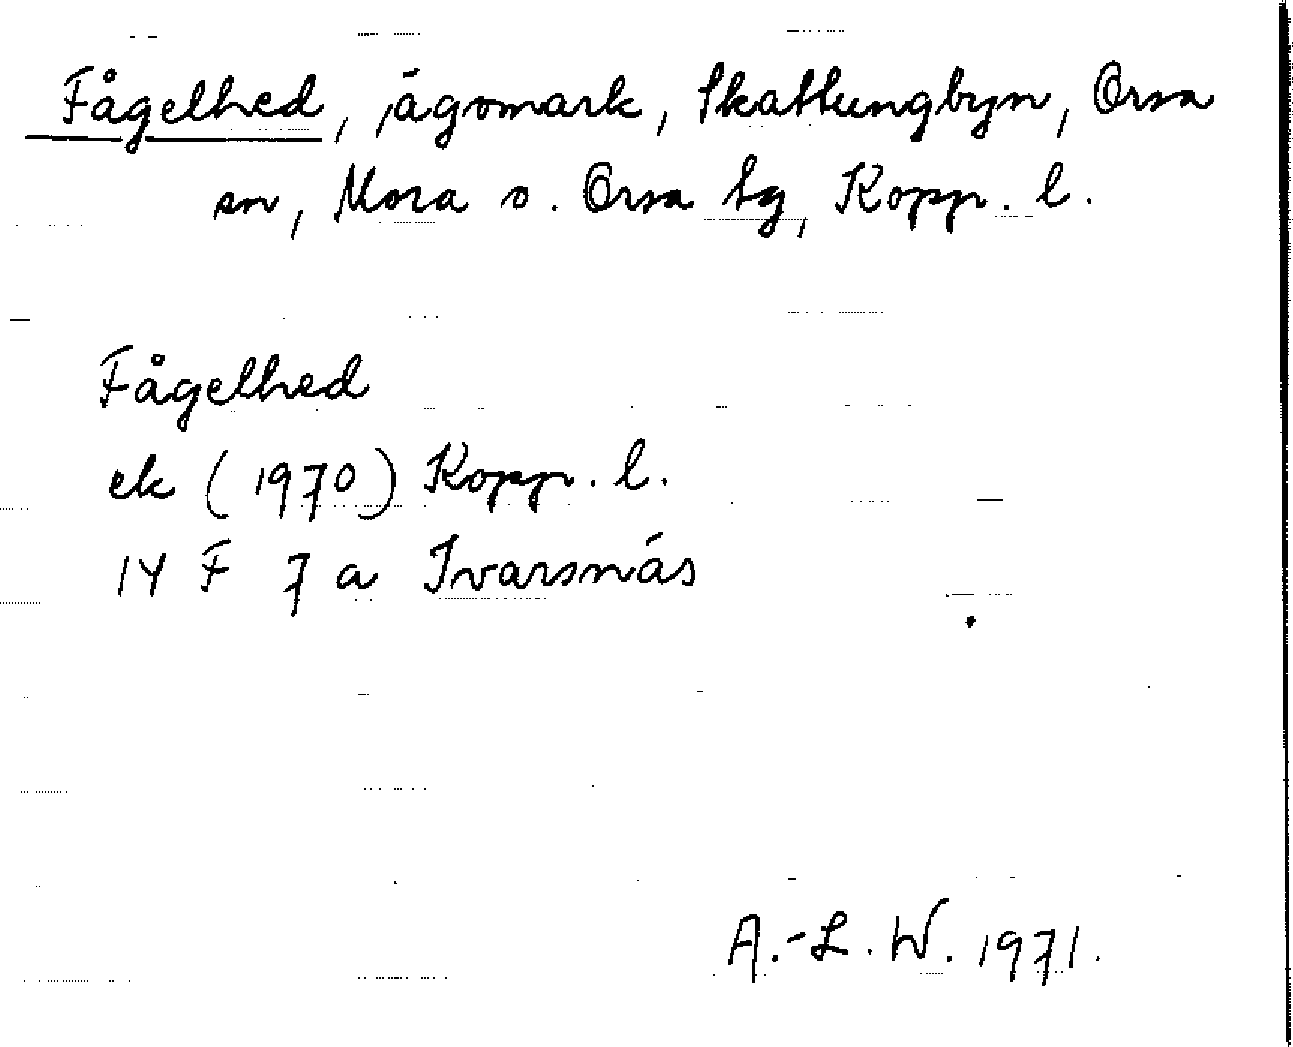 Fågelhed, ägomark, Skattungbyn, Orsa
sn, Mora o. Orsa tg, Kopp. l.
Fågelhed
ek (1970) Kopp. l.
14 F 7 a Ivarsnäs
A.-L. W. 1971.